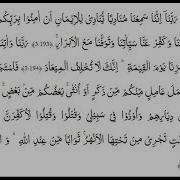 رَبَّنَا إِنَّنَا سَمِعْنَا مُنَادِيًا يُنَادِي لِلْإِيمَانِ أَنْ آمِنُوا بِرَبِّكُمْ
وَكَفِّرْ عَنَّا سَيِّئَاتِنَا وَتَوَفَّنَا مَعَ الْأَبْرَارِ (3:193) رَبَّنَا وَآتِنَا
يَوْمَ الْقِيَامَةِ ۗ إِنَّكَ لَا تُخْلِفُ الْمِيعَادَ (3:194)
عَامِلٍ مِنْكُمْ مِنْ ذَكَرٍ أَوْ أُنْثَى ۖ بَعْضُكُمْ مِنْ بَعْضٍ ۖ
دِيَارِهِمْ وَأُوذُوا فِي سَبِيلِي وَقَاتَلُوا وَقُتِلُوا لَأُكَفِّرَنَّ
تَجْرِي مِنْ تَحْتِهَا الْأَنْهَارُ ثَوَابًا مِنْ عِنْدِ اللَّهِ ۗ